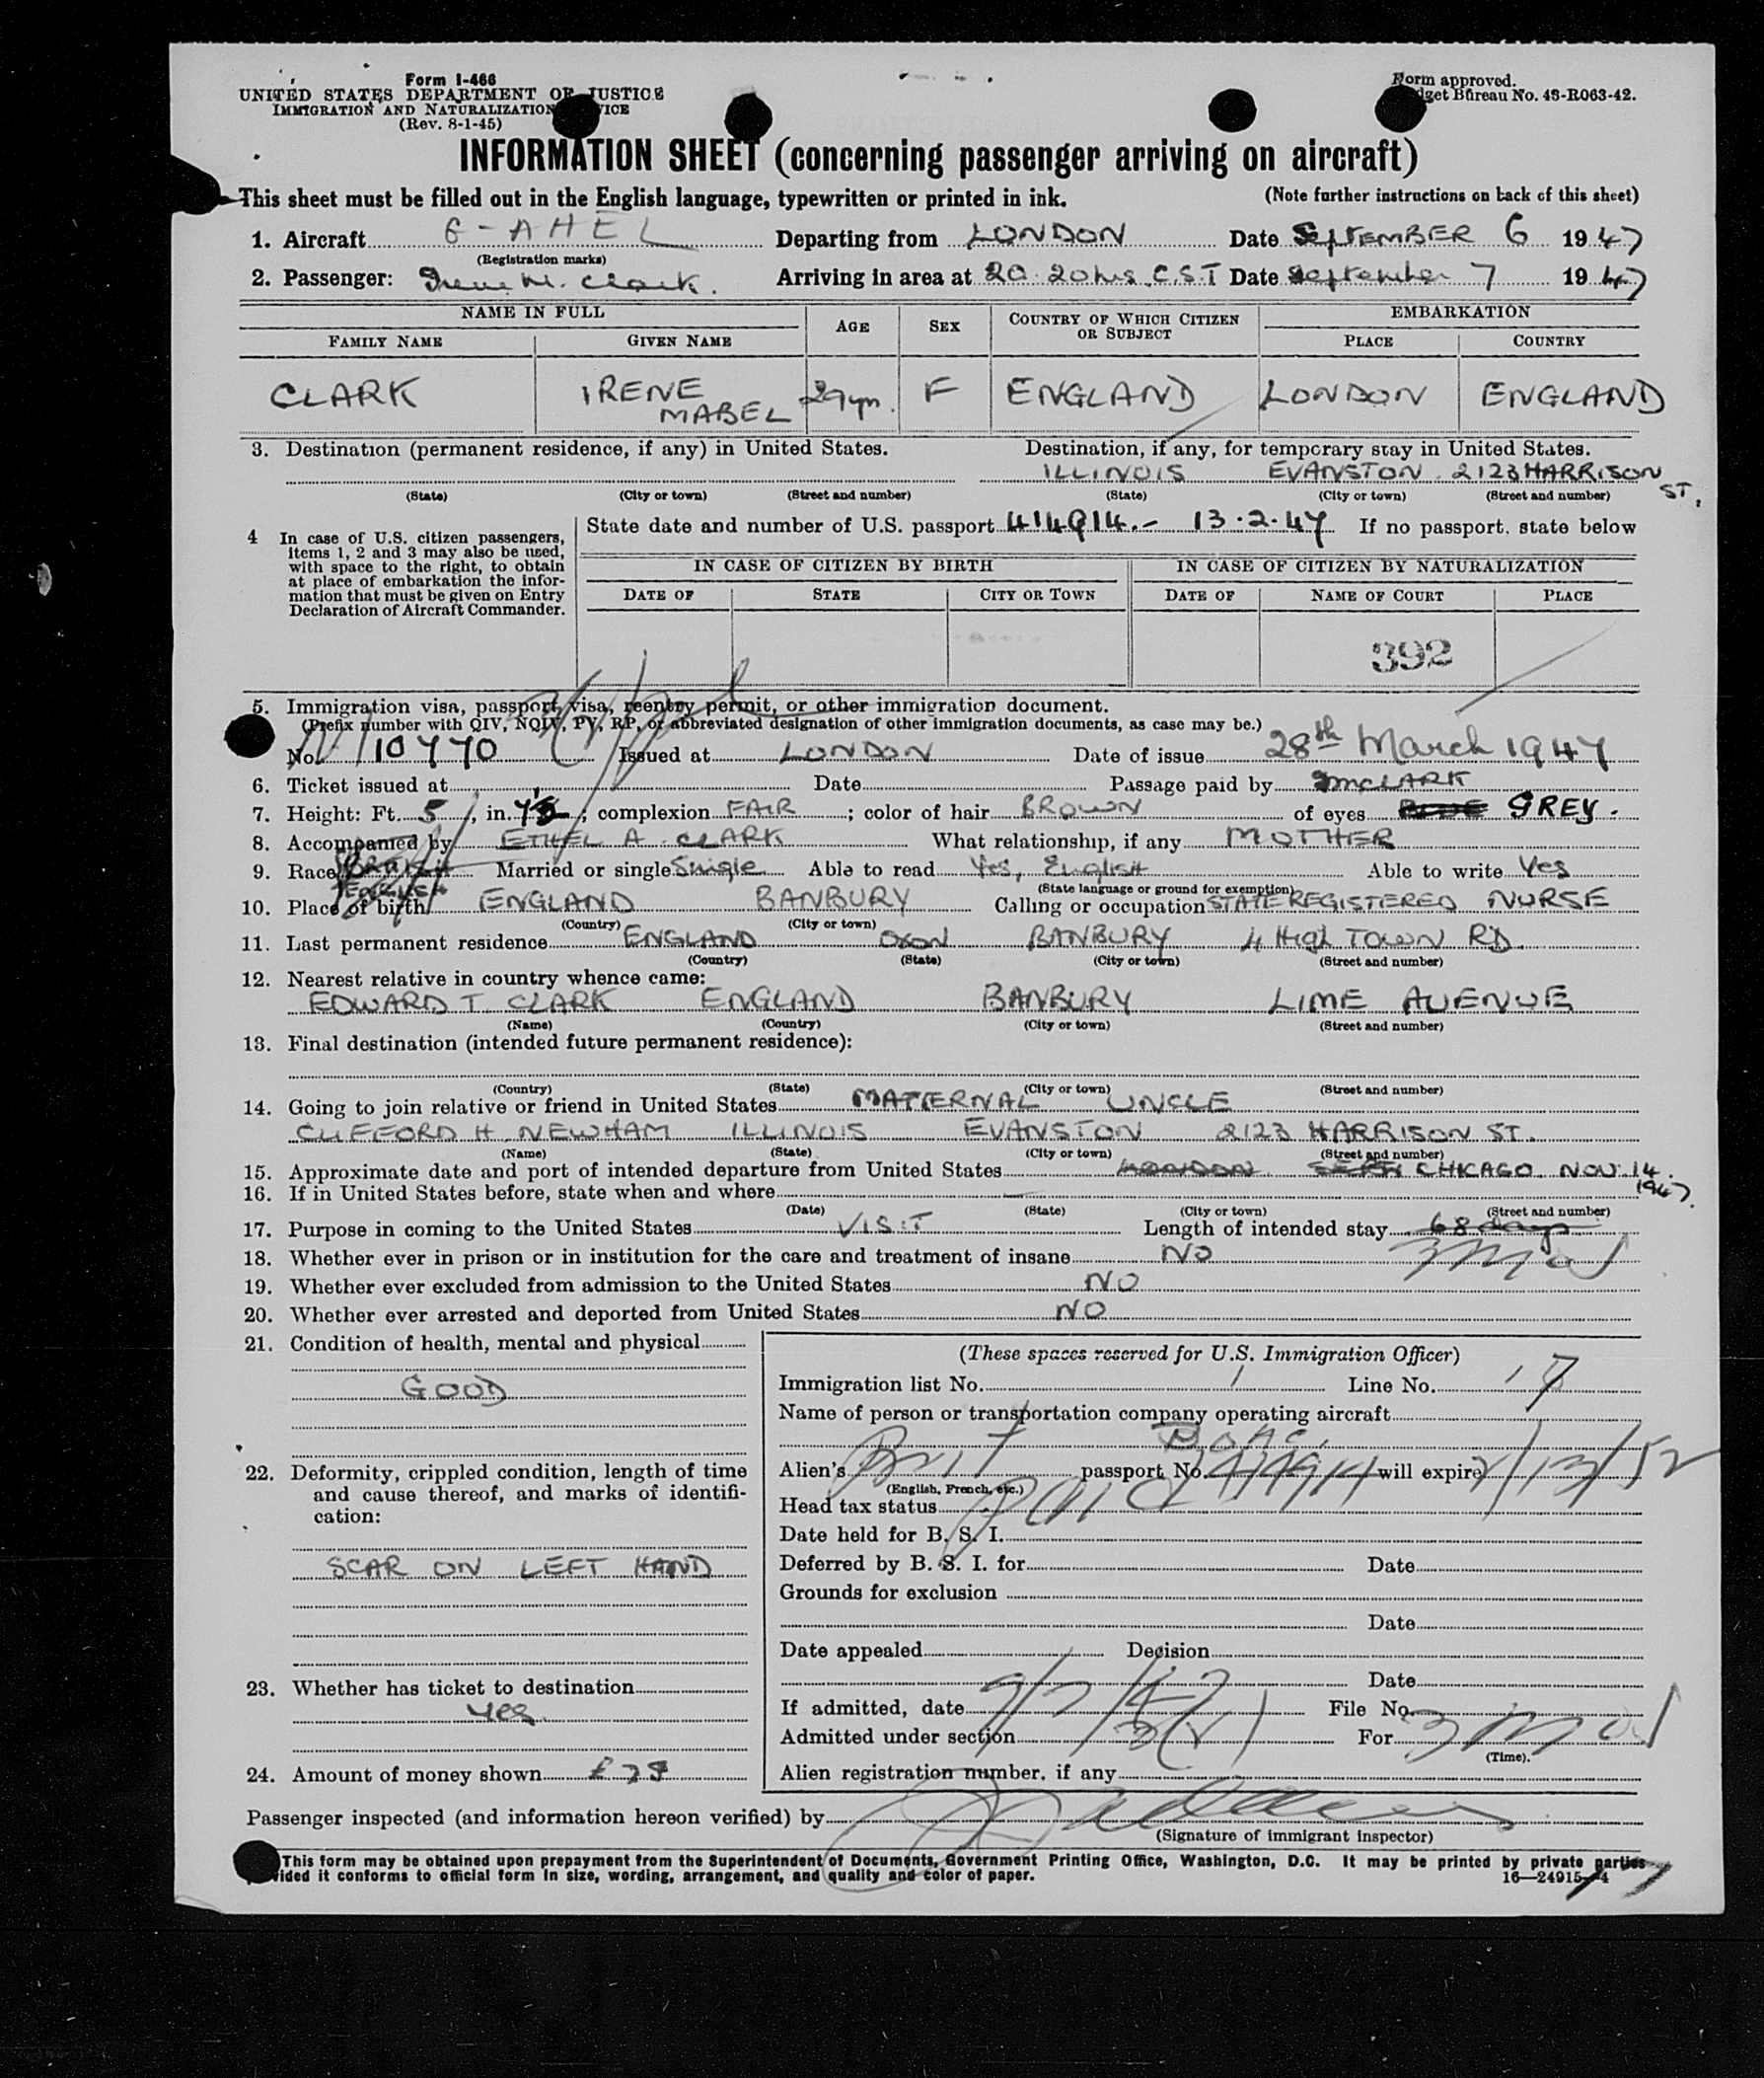 Form I-466
UNITED STATES DEPARTMENT OF JUSTICE
IMMIGRATION AND NATURALIZATION VICE
(Rev. 8-1-45)
Form approved.
get Bureau No. 43-R063-42.
INFORMATION SHEET (concerning passenger arriving on aircraft)
This sheet must be filled out in the English language, typewritten or printed in ink. (Note further instructions on back of this sheet)
1. Aircraft G-AHEL Departing from LONDON Date SEPTEMBER 6 1947
(Registration marks)
2. Passenger: Irene M. Clark. Arriving in area at 20.20 hrs C.S.T Date September 7 1947
NAME IN FULL AGE SEX COUNTRY OF WHICH CITIZEN OR SUBJECT EMBARKATION
FAMILY NAME GIVEN NAME PLACE COUNTRY
CLARK IRENE MABEL 29 yrs. F ENGLAND LONDON ENGLAND
3. Destination (permanent residence, if any) in United States. Destination, if any, for temporary stay in United States.
ILLINOIS EVANSTON. 2123 HARRISON ST.
(State) (City or town) (Street and number) (State) (City or town) (Street and number)
4 In case of U.S. citizen passengers, items 1, 2 and 3 may also be used, with space to the right, to obtain at place of embarkation the information that must be given on Entry Declaration of Aircraft Commander.
State date and number of U.S. passport 414914.- 13.2.47 If no passport, state below
IN CASE OF CITIZEN BY BIRTH IN CASE OF CITIZEN BY NATURALIZATION
DATE OF STATE CITY OR TOWN DATE OF NAME OF COURT PLACE
392
5. Immigration visa, passport visa, reentry permit, or other immigration document.
(Prefix number with QIV, NQIV, PV, RP, or abbreviated designation of other immigration documents, as case may be.)
No. 10770 Issued at LONDON Date of issue 28th March 1947
6. Ticket issued at Date Passage paid by IMCLARK
7. Height: Ft. 5, in. 7½; complexion FAIR; color of hair BROWN of eyes GREY.
8. Accompanied by ETHEL A. CLARK What relationship, if any MOTHER
9. Race Married or single Single Able to read Yes, English Able to write Yes
(State language or ground for exemption)
10. Place of birth ENGLAND BANBURY Calling or occupation STATE REGISTERED NURSE
(Country) (City or town)
11. Last permanent residence ENGLAND OXON BANBURY 4 High TOWN RD.
(Country) (State) (City or town) (Street and number)
12. Nearest relative in country whence came:
EDWARD T. CLARK ENGLAND BANBURY LIME AVENUE
(Name) (Country) (City or town) (Street and number)
13. Final destination (intended future permanent residence):
(Country) (State) (City or town) (Street and number)
14. Going to join relative or friend in United States MATERNAL UNCLE
CLIFFORD H. NEWHAM ILLINOIS EVANSTON 2123 HARRISON ST.
(Name) (State) (City or town) (Street and number)
15. Approximate date and port of intended departure from United States LONDON CHICAGO NOV. 14. 1947
16. If in United States before, state when and where —
(Date) (State) (City or town) (Street and number)
17. Purpose in coming to the United States VISIT Length of intended stay 68 days
3 mos
18. Whether ever in prison or in institution for the care and treatment of insane NO
19. Whether ever excluded from admission to the United States NO
20. Whether ever arrested and deported from United States NO
21. Condition of health, mental and physical
GOOD
22. Deformity, crippled condition, length of time and cause thereof, and marks of identification:
SCAR ON LEFT HAND
23. Whether has ticket to destination
yes.
24. Amount of money shown £75
(These spaces reserved for U.S. Immigration Officer)
Immigration list No. 1 Line No. 17
Name of person or transportation company operating aircraft
BOAC.
Alien's Brit passport No. 414914 will expire 2/13/52
(English, French, etc.)
Head tax status
Date held for B. S. I.
Deferred by B. S. I. for Date
Grounds for exclusion
Date
Date appealed Decision
Date
If admitted, date 9/7/47 File No.
Admitted under section 3(2) For 3 mos
(Time).
Alien registration number, if any
Passenger inspected (and information hereon verified) by
(Signature of immigrant inspector)
This form may be obtained upon prepayment from the Superintendent of Documents, Government Printing Office, Washington, D.C. It may be printed by private parties
vided it conforms to official form in size, wording, arrangement, and quality and color of paper. 16—24915-4